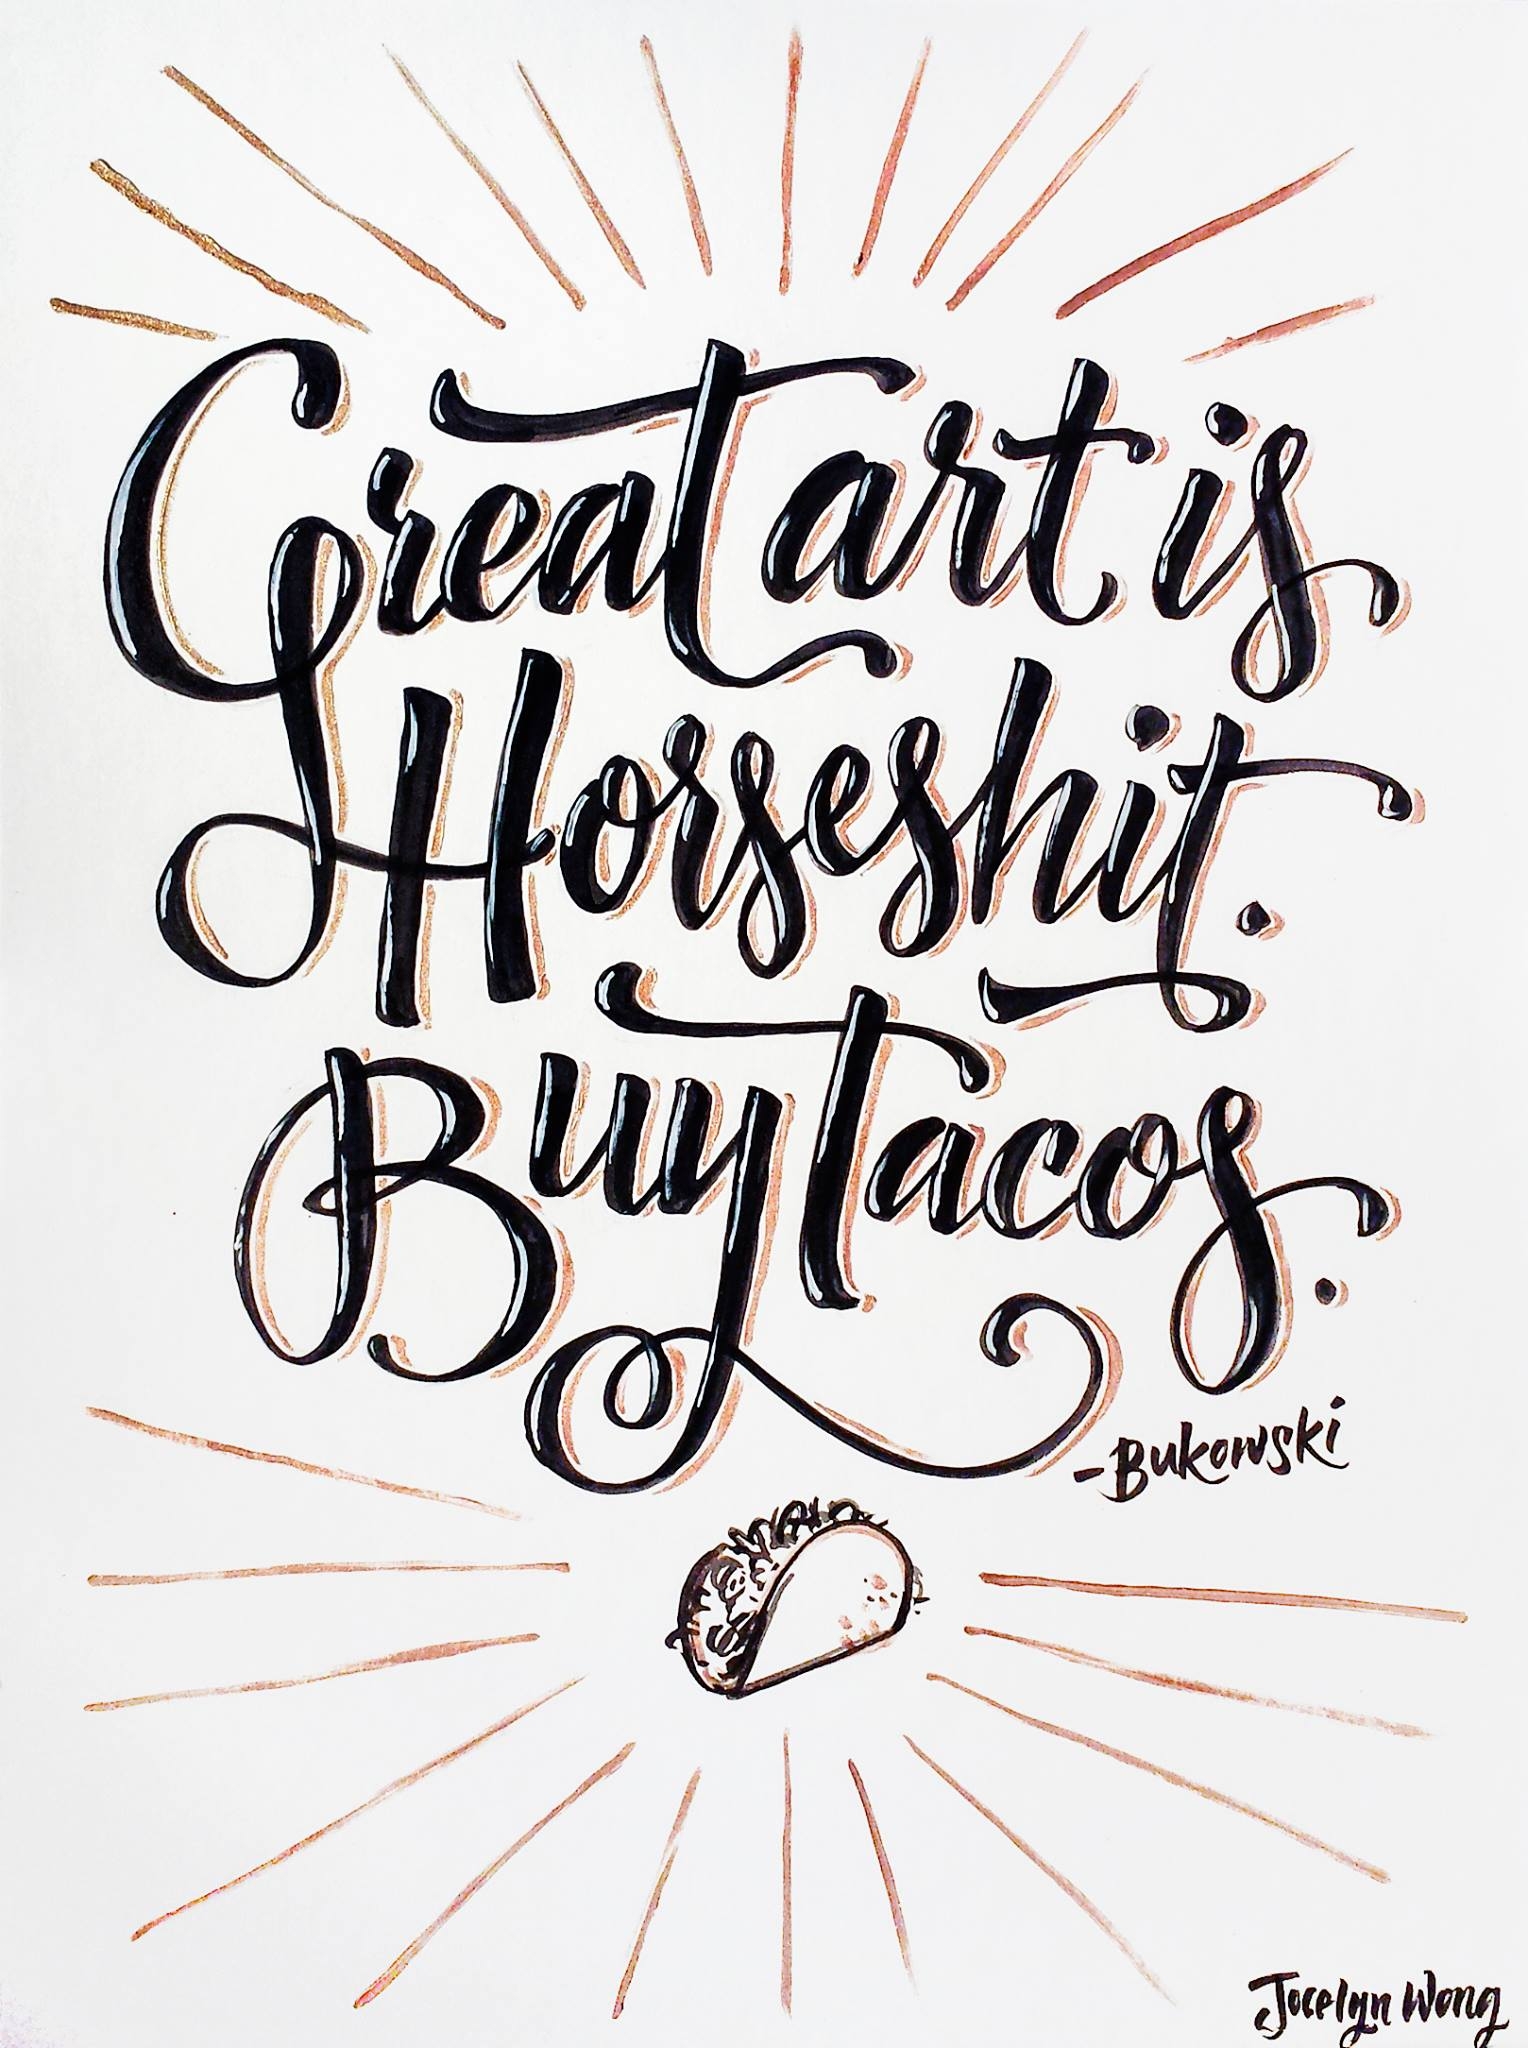 Great art is
Horseshit.
Buy Tacos.
-Bukowski
Jocelyn Wong